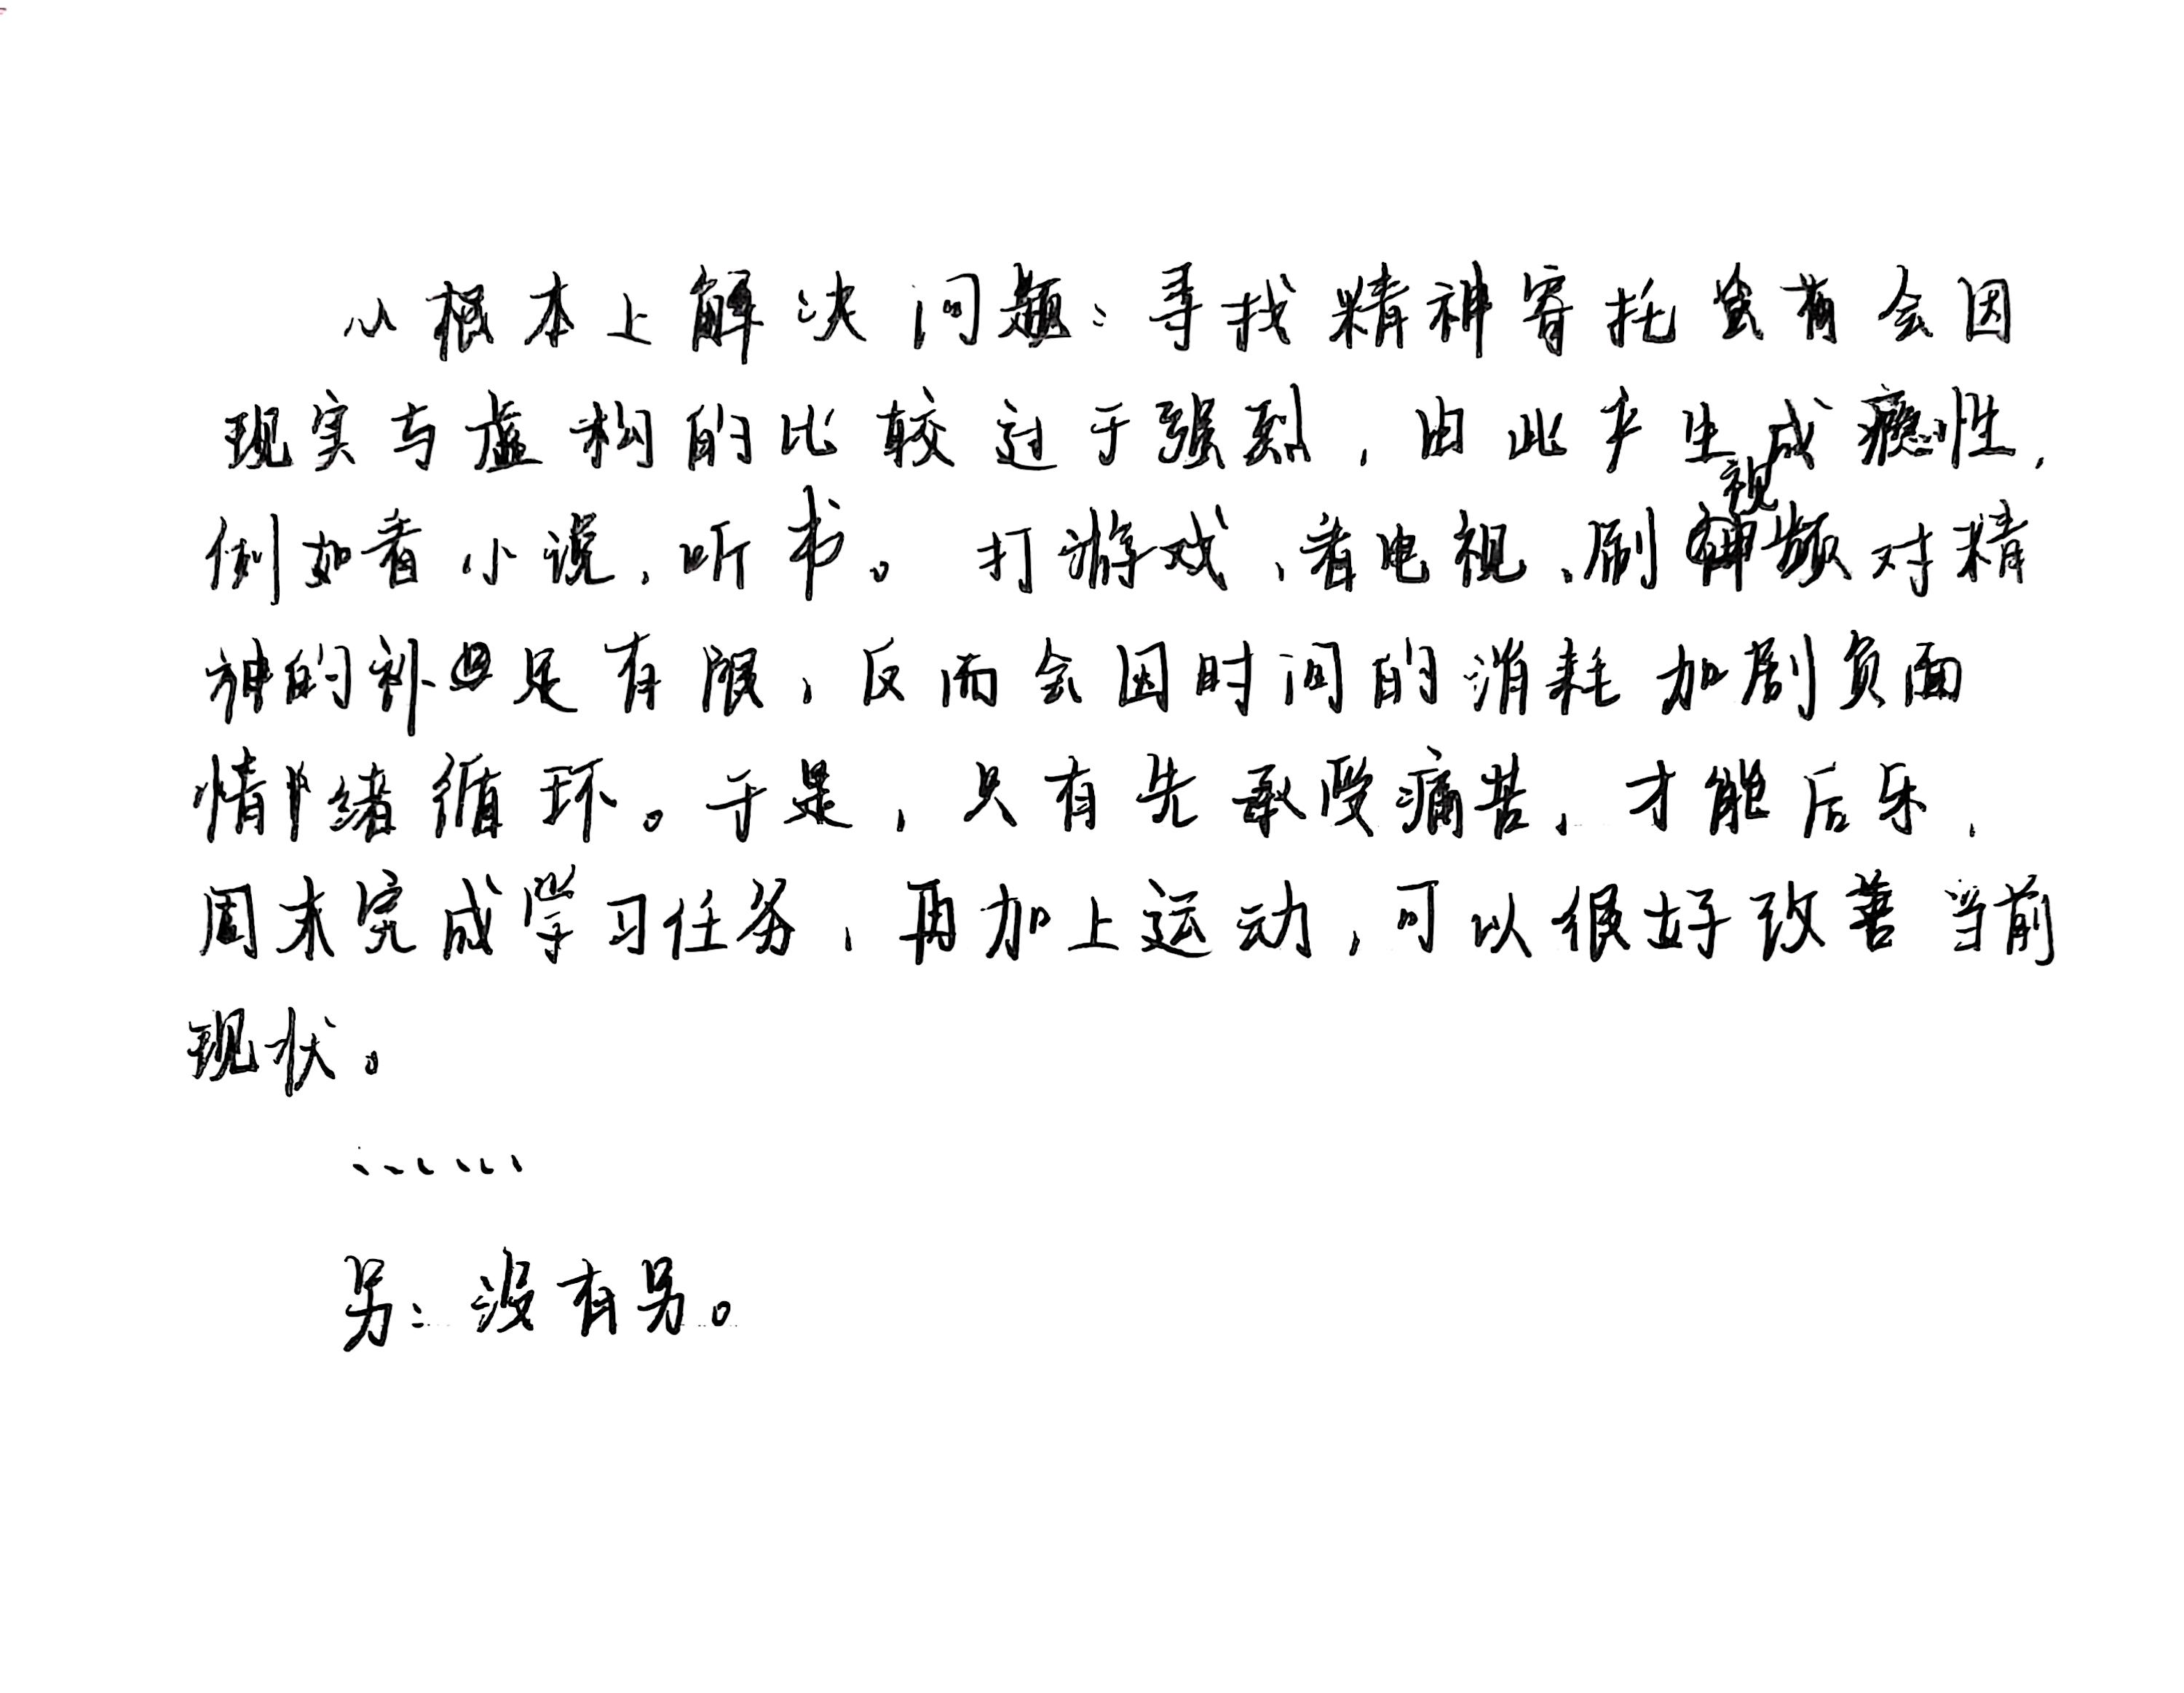 从根本上解决问题：寻找精神寄托会有会因
现实与虚构的比较过于强烈，由此产生成瘾性，
例如看小说，听书。打游戏、看电视、刷视频对精
神的补足有限，反而会因时间的消耗加剧负面
情绪循环。于是，只有先承受痛苦，才能后乐，
周末完成学习任务，再加上运动，可以很好改善当前
现状。
……
另：没有另。